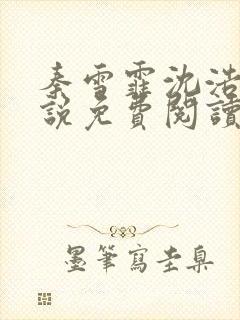 秦雪霏沈浩
說免費閱讀
墨筆寫圭臬